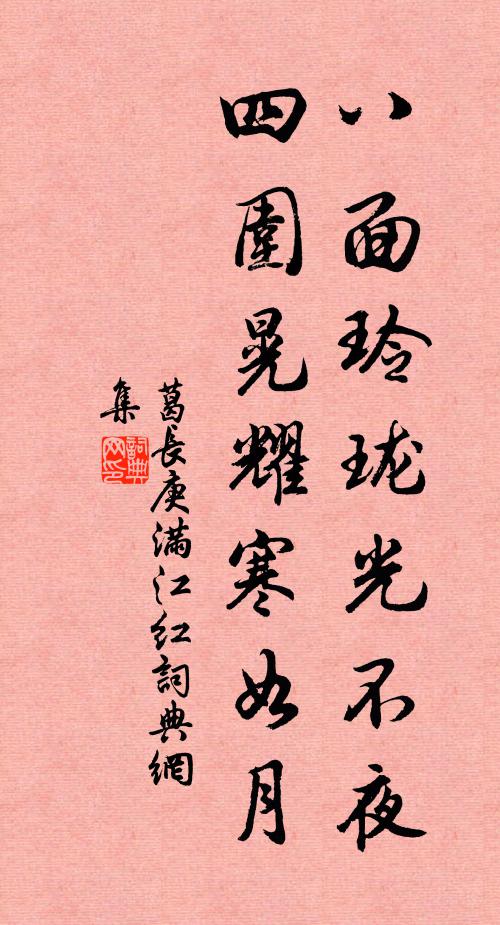 八面玲珑光不夜
四圍晃耀寒如月
葛長庚滿江紅詞典網
集
詞典網印